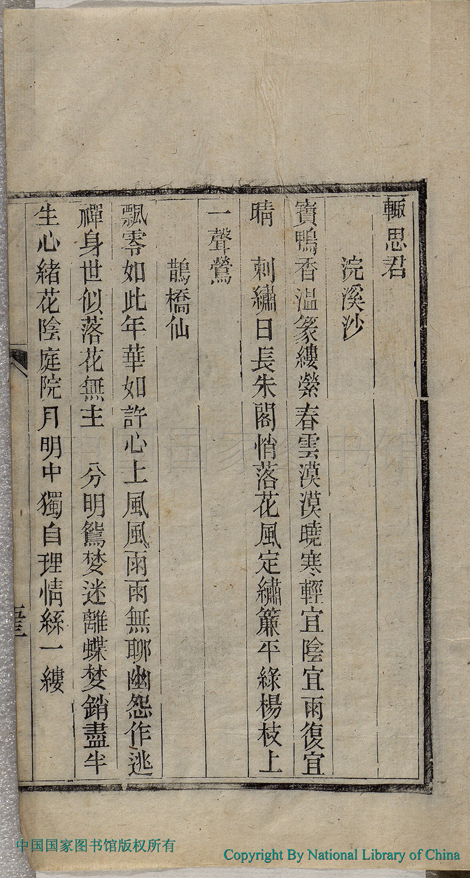 輙思君
浣溪沙
寶鴨香温篆縷縈春雲漠漠曉寒輕宜陰宜雨復宜
晴　刺繡日長朱閣悄落花風定繡簾平綠楊枝上
一聲鶯
鵲橋仙
飄零如此年華如許心上風風雨雨無聊幽怨作逃
禪身世似落花無主　分明鴛夢迷離蝶夢銷盡半
生心緒花陰庭院月明中獨自理情絲一縷
中国国家图书馆版权所有
Copyright By National Library of China